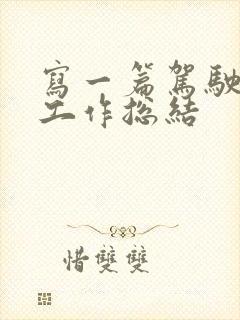 寫一篇駕駛
工作總結
惜雙雙